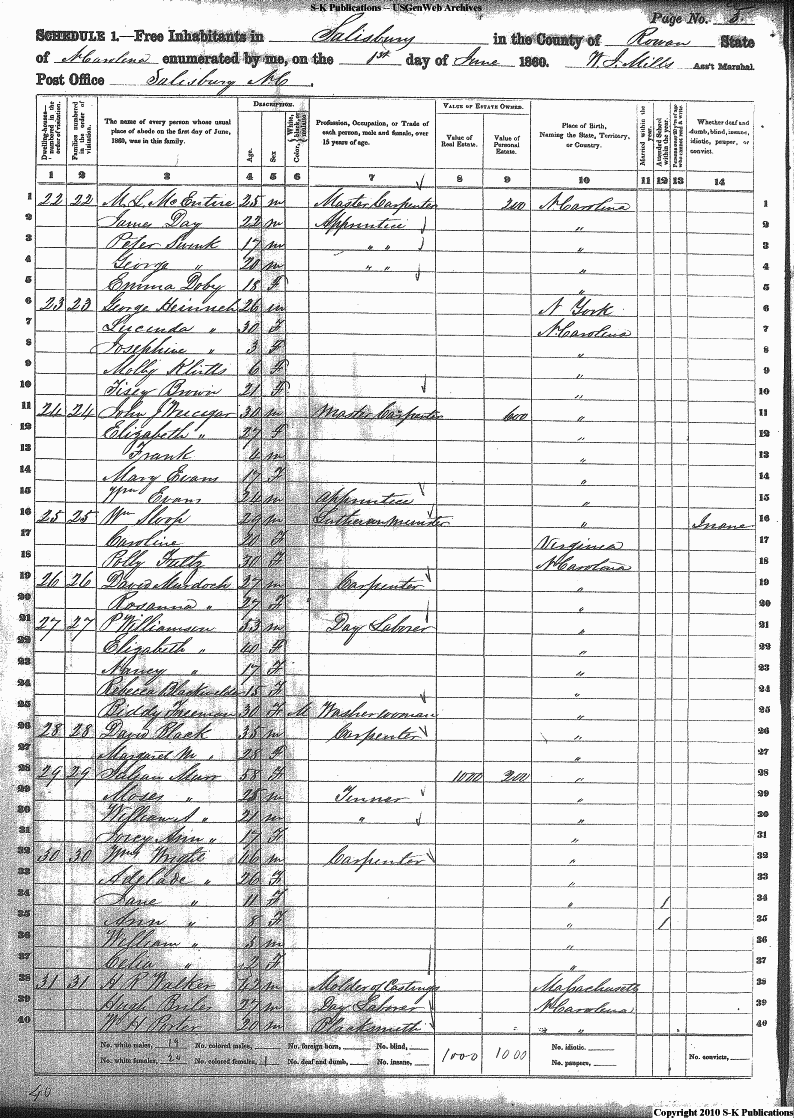 S-K Publications -- USGenWeb Archives
Page No. 5.
SCHEDULE 1.—Free Inhabitants in Salisbury in the County of Rowan State
of N. Carolina enumerated by me, on the 1st day of June 1860. W. J. Mills Ass't Marshal.
Post Office Salisbury N.C.
Dwelling-houses—numbered in the order of visitation.
Families numbered in the order of visitation.
The name of every person whose usual place of abode on the first day of June, 1860, was in this family.
DESCRIPTION.
Age.
Sex
Color, White, black, or mulatto.
Profession, Occupation, or Trade of each person, male and female, over 15 years of age.
VALUE OF ESTATE OWNED.
Value of Real Estate.
Value of Personal Estate.
Place of Birth, Naming the State, Territory, or Country.
Married within the year.
Attended School within the year.
Persons over 20 y'rs of age who cannot read & write
Whether deaf and dumb, blind, insane, idiotic, pauper, or convict.
1 2 3 4 5 6 7 8 9 10 11 12 13 14
1 22 22 M. L. McEntire 25 m Master Carpenter 200 N Carolina 1
2 James Day 22 m Apprentice " 2
3 Peter Swink 17 m " " " 3
4 George " 20 m " " " 4
5 Emma Doby 18 F " 5
6 23 23 George Heinrich 26 m N York 6
7 Lucinda " 30 F N Carolina 7
8 Josephine " 3 F " 8
9 Molly Kluts 6 F " 9
10 Brown 21 F " 10
11 24 24 John J 30 m Master Carpenter 600 " 11
12 Elizabeth " 27 F " 12
13 Frank 4 m " 13
14 Mary Evans 17 F " 14
15 Wm Evans 24 m Apprentice " 15
16 25 25 Wm Sloop 29 m Lutheran Minister " Insane 16
17 Caroline 20 F Virginia 17
18 Polly Fultz 30 F N Carolina 18
19 26 26 David Murdoch 27 m Carpenter " 19
20 Rosanna " 27 F " 20
21 27 27 P Williamson 53 m Day Laborer " 21
22 Elizabeth " 40 F " 22
23 Nancy " 17 F " 23
24 Rebecca Blackwelder 15 F " 24
25 Biddy Freeman 30 F M Washerwoman " 25
26 28 28 David Black 35 m Carpenter " 26
27 Margaret M " 28 F " 27
28 29 29 Murr 58 F 1000 200 " 28
29 Moses " 25 m Tinner " 29
30 William A " 21 m " " 30
31 Ann " 17 F " 31
32 30 30 Wm Wright 46 m Carpenter " 32
33 Adelade " 26 F " 33
34 Jane " 11 F " 1 34
35 Ann " 8 F " 1 35
36 William " 5 m " 36
37 Celia " 2 F " 37
38 31 31 H W Walker 42 m Molder of Castings Massachusetts 38
39 Hugh 27 m Day Laborer N Carolina 39
40 Wm H Porter 20 m Blacksmith " 40
No. white males, 19 No. colored males, No. foreign born, No. blind, No. idiotic,
No. white females, 20 No. colored females, 1 No. deaf and dumb, No. insane, 1000 1000 No. paupers, No. convicts,
40
Copyright 2010 S-K Publications